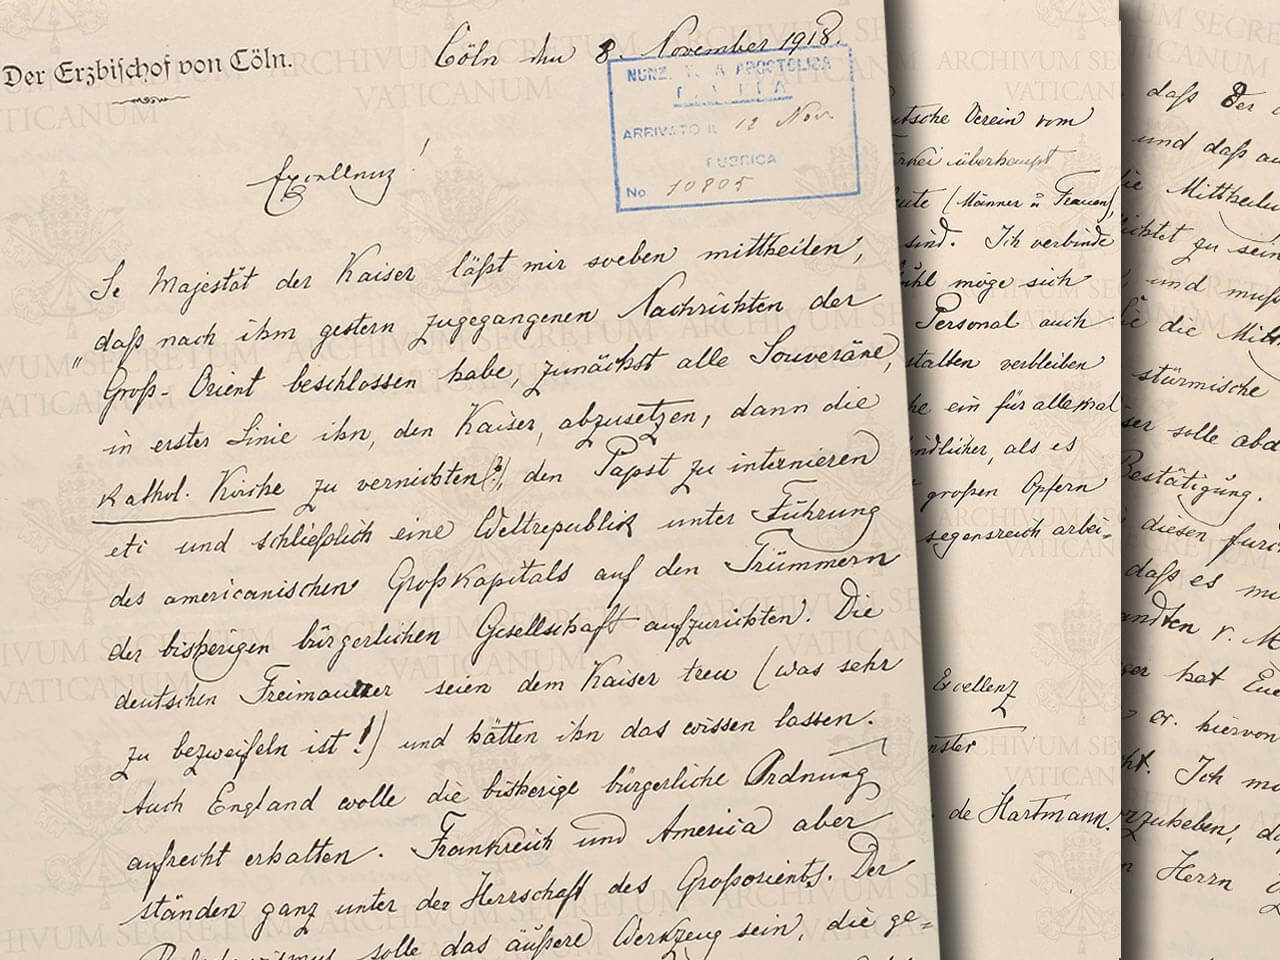 Der Erzbischof von Cöln.
Cöln den 8. November 1918.
NUNZ APOSTOLICA
ARRIVATO IL 12 Nov.
RUBRICA
No 10805
Excellenz!
Se Majestät der Kaiser läßt mir soeben mittheilen,
" daß nach ihm gestern zugegangenen Nachrichten der
Groß-Orient beschlossen habe, zunächst alle Souveräne,
in erster Linie ihn, den Kaiser, abzusetzen, dann die
kathol. Kirche zu vernichten(?), den Papst zu internieren
etc und schließlich eine Weltrepublik unter Führung
des americanischen Großkapitals auf den Trümmern
der bisherigen bürgerlichen Gesellschaft aufzurichten. Die
deutschen Freimaurer seien dem Kaiser treu (was sehr
zu bezweifeln ist!) und hätten ihn das wissen lassen.
Auch England wolle die bisherige bürgerliche Ordnung
aufrecht erhalten. Frankreich und America aber
ständen ganz unter der Herrschaft des Großorients. Der
Bolschewismus solle das äußere Werkzeug sein, die ge=
utsche Verein vom
rkei überhaupt
eute (Männer u Frauen),
sind. Ich verbinde
ühl möge sich
Personal auch
stalten verbleiben
he ein für allemal
ndlicher, als es
großen Opfern
segensreich arbei=
Excellenz
nster
de Hartmann.
daß der
und daß au
ie Mittheilu
ichtet zu sein
und muß
ie die Mitt
stürmische
ser solle abd
Bestätigung.
diesen
daß es mi
andten v. M
ger hat Eue
er. hiervon
ht. Ich m
rzuheben, da
n Herrn
ARCHIVUM SECRETUM
VATICANUM